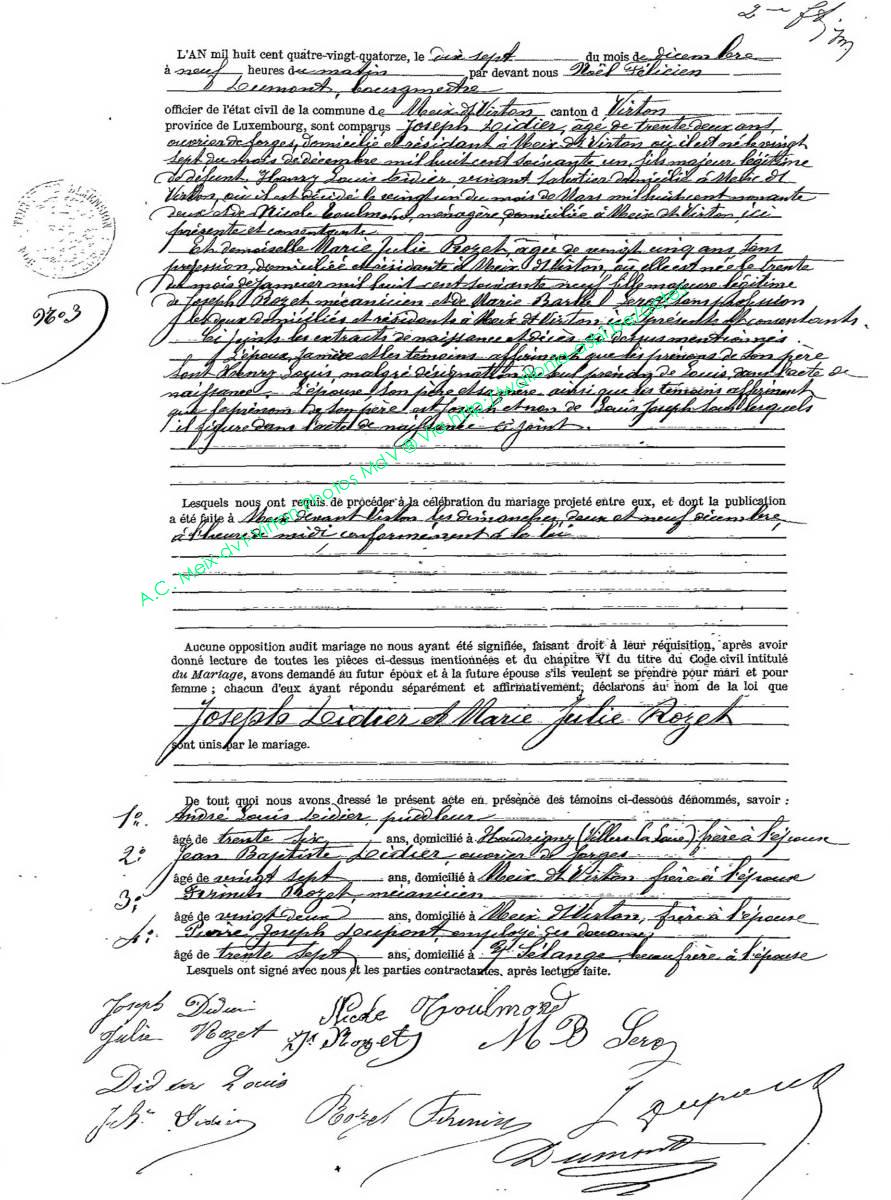 L'AN mil huit cent quatre-vingt-quatorze, le dix sept du mois de décembre
à neuf heures du matin par devant nous Noël Félicien
Dumont, bourgmestre
officier de l'état civil de la commune de Meix dt Virton canton d Virton
province de Luxembourg, sont comparus Joseph Didier, âgé de trente deux ans,
ouvrier de forges, domicilié et résidant à Meix dt Virton où il est né le vingt
sept du mois de décembre mil huit cent soixante un, fils majeur légitime
de défunt Henry Louis Didier, vivant domicilié à Meix dt
Virton, où il est décédé le vingt un du mois de Mars mil huit cent nonante
deux et de Nicole Toulmond, ménagère, domiciliée à Meix dt Virton, ici
présente et consentante
Et demoiselle Marie Julie Rozet, âgée de vingt cinq ans, sans
profession, domiciliée et résidante à Meix dt Virton, où elle est née le trente
du mois de janvier mil huit cent soixante neuf, fille majeure légitime
de Joseph Rozet mécanicien et de Marie Barbe sans profession
les deux domiciliés et résidants à Meix dt Virton ici présents et consentants.
Ci joints les extraits de naissance et décès ci dessus mentionnés
L'époux, sa mère et les témoins affirment que les prénoms de son père
sont Henry Louis, malgré désignation seul prénom de Louis dans l'acte de
naissance. L'épouse son père et sa mère ainsi que les témoins affirment
que le prénom de son père est Joseph et non de Louis Joseph sous lesquels
il figure dans l'acte de naissance ci joint.
No 3
A.C. Meix-dvt-Virton Photos MdV @ Via http://wallonia-asbl.be/actes/
Lesquels nous ont requis de procéder à la célébration du mariage projeté entre eux, et dont la publication
a été faite à Meix devant Virton les dimanches deux et neuf décembre,
à l'heure de midi conformément à la loi
Aucune opposition audit mariage ne nous ayant été signifiée, faisant droit à leur réquisition, après avoir
donné lecture de toutes les pièces ci-dessus mentionnées et du chapitre VI du titre du Code civil intitulé
du Mariage, avons demandé au futur époux et à la future épouse s'ils veulent se prendre pour mari et pour
femme ; chacun d'eux ayant répondu séparément et affirmativement, déclarons au nom de la loi que
Joseph Didier et Marie Julie Rozet
sont unis par le mariage.
De tout quoi nous avons dressé le présent acte en présence des témoins ci-dessous dénommés, savoir :
1o. André Louis Didier, puddleur
âgé de trente six ans, domicilié à Houdrigny (Villers la Loue) frère à l'époux
2o Jean Baptiste Didier ouvrier de forges
âgé de vingt sept ans, domicilié à Meix dt Virton frère à l'époux
3o Firmin Rozet, mécanicien
âgé de vingt deux ans, domicilié à Meix dt Virton, frère à l'épouse
4o Pierre Joseph Dupont, employé des douanes
âgé de trente sept ans, domicilié à Sélange, beau frère à l'épouse
Lesquels ont signé avec nous et les parties contractantes, après lecture faite.
Joseph Didier Nicole Toulmond
Julie Rozet Js Rozet M B
Didier Louis
J Bte Didier Rozet Firmin J Dupont
Dumont